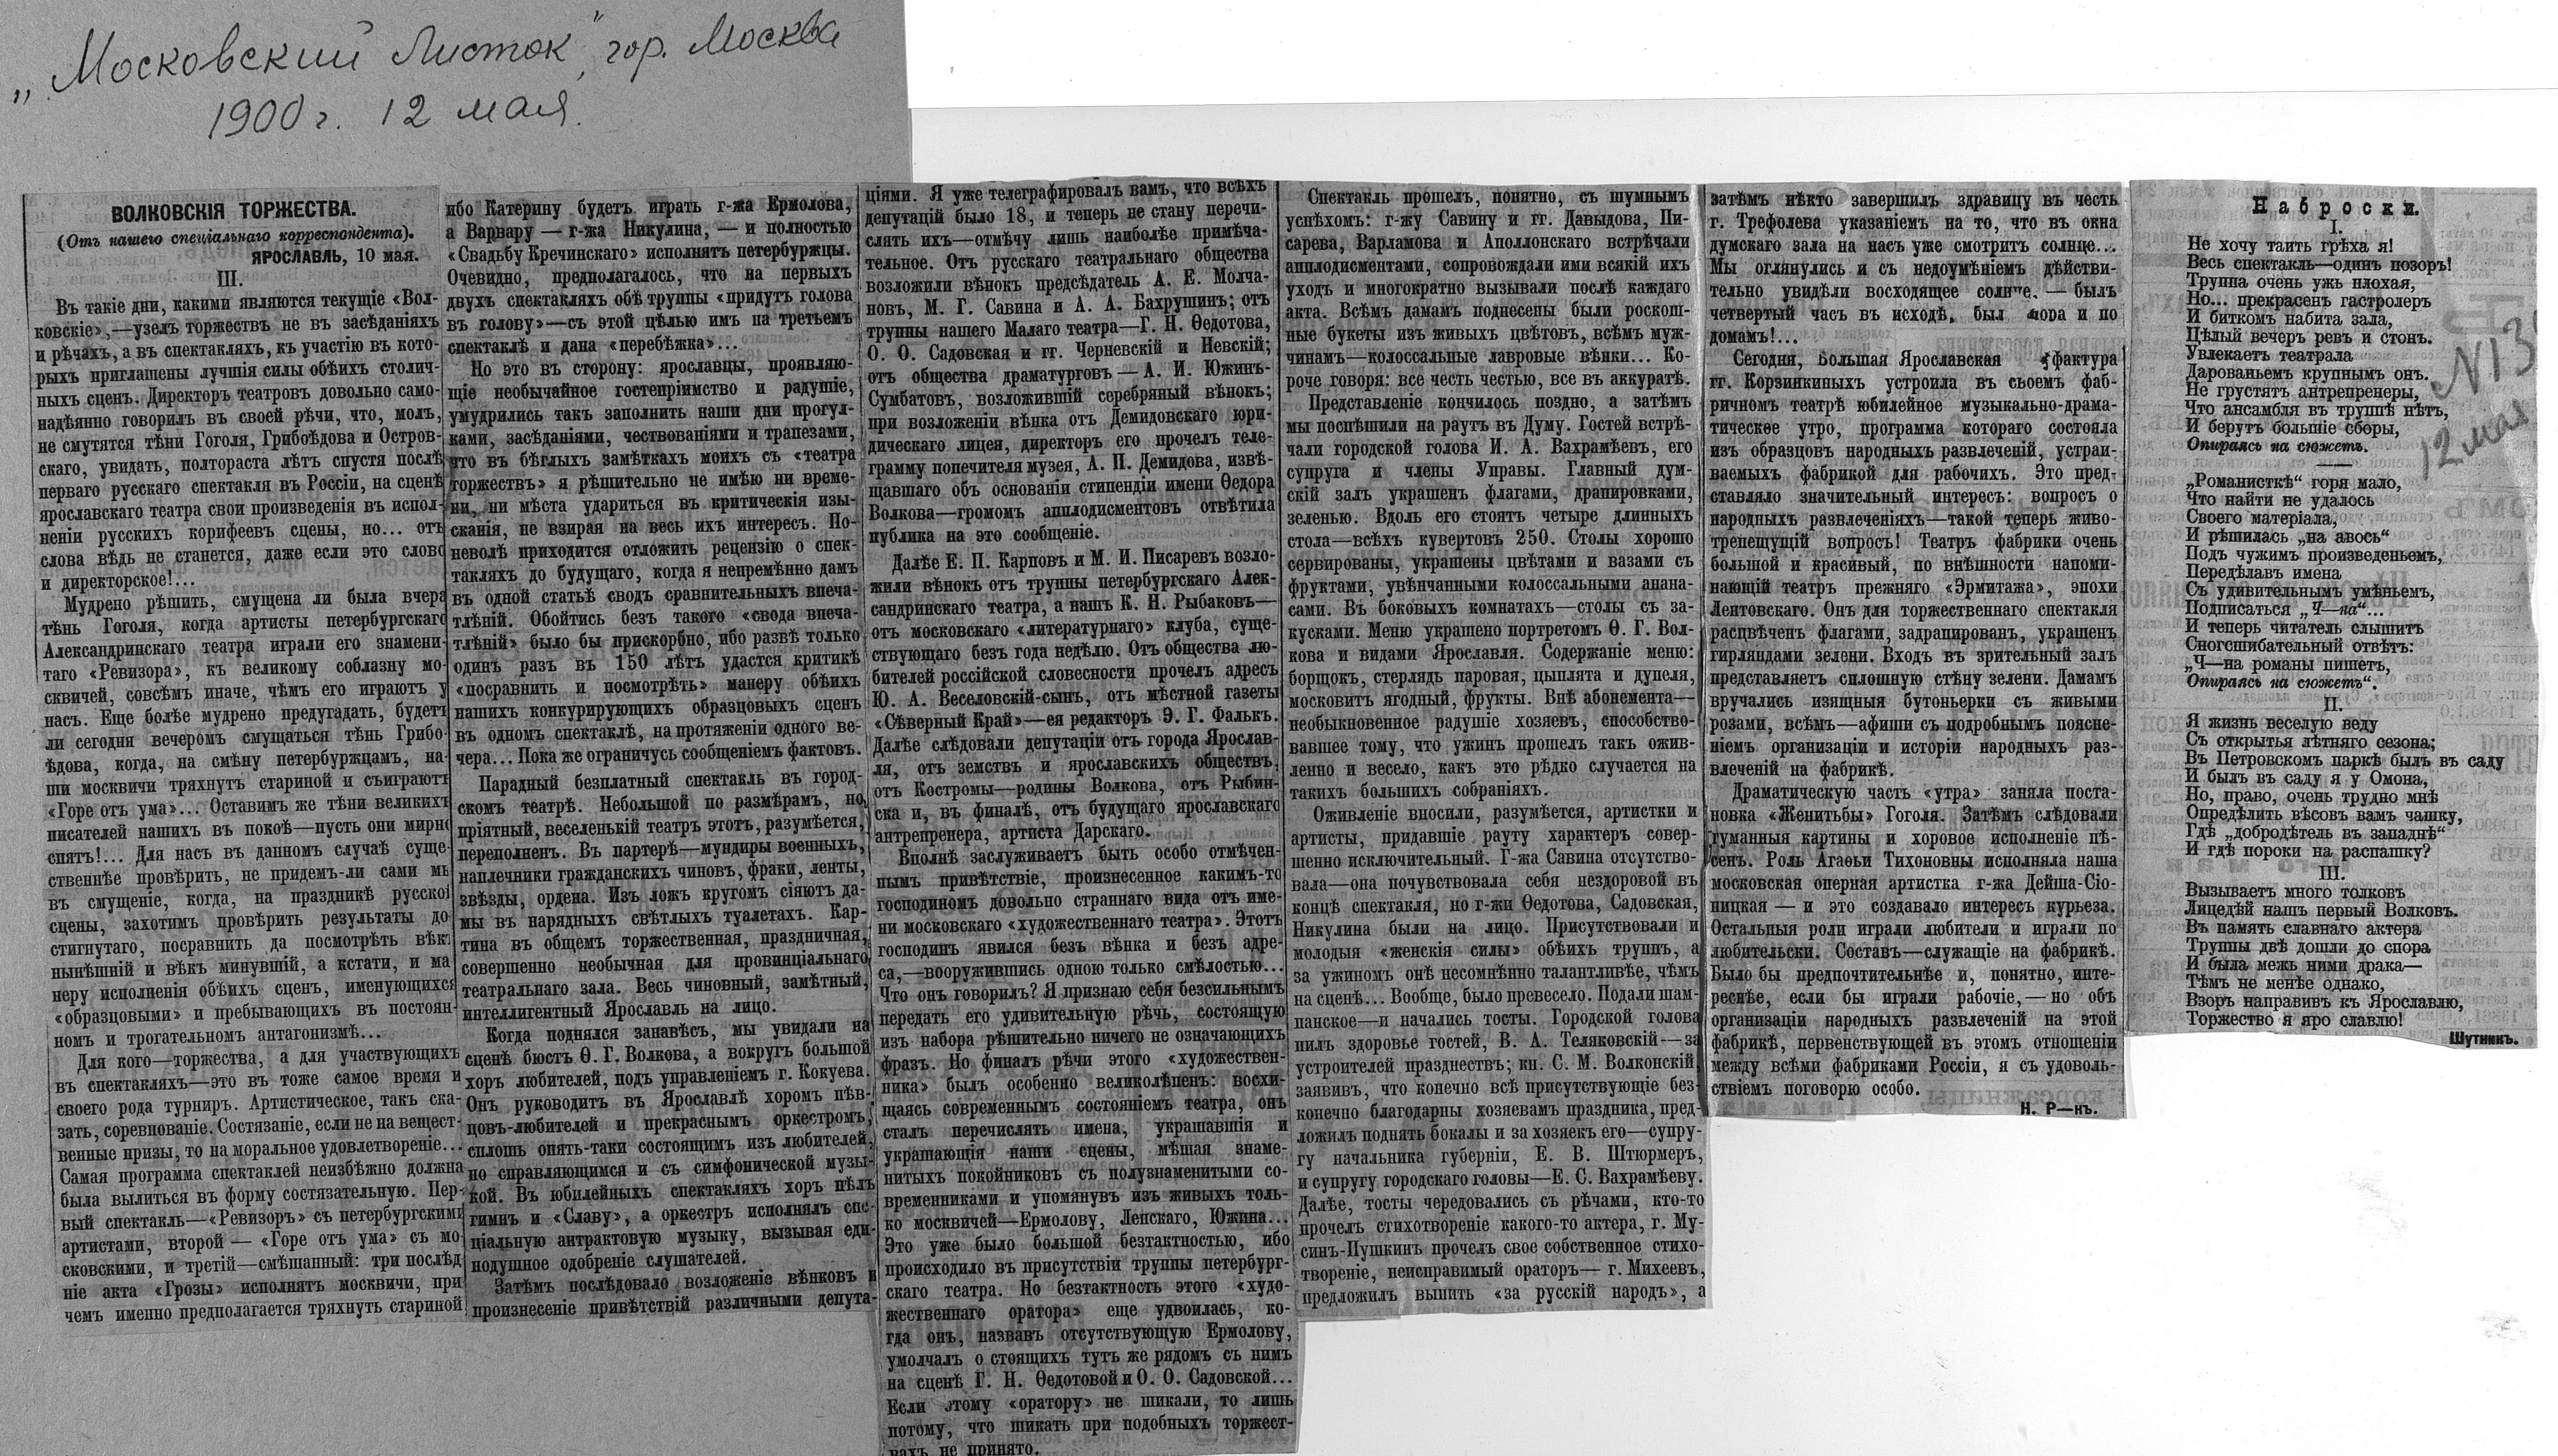 „Московский Листок", гор. Москва
1900 г. 12 мая.
ВОЛКОВСКІЯ ТОРЖЕСТВА.
(Отъ нашего спеціальнаго корреспондента).
ЯРОСЛАВЛЬ, 10 мая.
III.
Въ такіе дни, какими являются текущіе «Вол-
ковскіе»,—узелъ торжествъ не въ засѣданіяхъ
и рѣчахъ, а въ спектакляхъ, къ участію въ кото-
рыхъ приглашены лучшія силы обѣихъ столич-
ныхъ сценъ. Директоръ театровъ довольно само-
надѣянно говорилъ въ своей рѣчи, что, молъ,
не смутятся тѣни Гоголя, Грибоѣдова и Остров-
скаго, увидать, полтораста лѣтъ спустя послѣ
перваго русскаго спектакля въ Россіи, на сценѣ
ярославскаго театра свои произведенія въ испол-
неніи русскихъ корифеевъ сцены, но... отъ
слова вѣдь не станется, даже если это слово
и директорское!...
Мудрено рѣшить, смущена ли была вчера
тѣнь Гоголя, когда артисты петербургскаго
Александринскаго театра играли его знамени-
таго «Ревизора», къ великому соблазну мо-
сквичей, совсѣмъ иначе, чѣмъ его играютъ у
насъ. Еще болѣе мудрено предугадать, будетъ
ли сегодня вечеромъ смущаться тѣнь Грибо-
ѣдова, когда, на смѣну петербуржцамъ, на-
ши москвичи тряхнутъ стариной и съиграютъ
«Горе отъ ума»... Оставимъ же тѣни великихъ
писателей нашихъ въ покоѣ—пусть они мирно
спятъ!... Для насъ въ данномъ случаѣ суще-
ственнѣе провѣрить, не придемъ-ли сами мы
въ смущеніе, когда, на праздникѣ русской
сцены, захотимъ провѣрить результаты до-
стигнутаго, посравнить да посмотрѣть вѣкъ
нынѣшній и вѣкъ минувшій, а кстати, и ма-
неру исполненія обѣихъ сценъ, именующихся
«образцовыми» и пребывающихъ въ постоян-
номъ и трогательномъ антагонизмѣ...
Для кого—торжества, а для участвующихъ
въ спектакляхъ—это въ тоже самое время и
своего рода турниръ. Артистическое, такъ ска-
зать, соревнованіе. Состязаніе, если не на вещест-
венные призы, то на моральное удовлетвореніе...
Самая программа спектаклей неизбѣжно должна
была вылиться въ форму состязательную. Пер-
вый спектакль—«Ревизоръ» съ петербургскими
артистами, второй — «Горе отъ ума» съ мо-
сковскими, и третій—смѣшанный: три послѣд-
ніе акта «Грозы» исполнятъ москвичи, при
чемъ именно предполагается тряхнуть стариной,
ибо Катерину будетъ играть г-жа Ермолова,
а Варвару — г-жа Никулина, — и полностью
«Свадьбу Кречинскаго» исполнятъ петербуржцы.
Очевидно, предполагалось, что на первыхъ
двухъ спектакляхъ обѣ труппы «придутъ голова
въ голову»—съ этой цѣлью имъ на третьемъ
спектаклѣ и дана «перебѣжка»...
Но это въ сторону: ярославцы, проявляю-
щіе необычайное гостепріимство и радушіе,
умудрились такъ заполнить наши дни прогул-
ками, засѣданіями, чествованіями и трапезами,
что въ бѣглыхъ замѣткахъ моихъ съ «театра
торжествъ» я рѣшительно не имѣю ни време-
ни, ни мѣста удариться въ критическія изы-
сканія, не взирая на весь ихъ интересъ. По-
неволѣ приходится отложить рецензію о спек-
такляхъ до будущаго, когда я непремѣнно дамъ
въ одной статьѣ сводъ сравнительныхъ впеча-
тлѣній. Обойтись безъ такого «свода впеча-
тлѣній» было бы прискорбно, ибо развѣ только
одинъ разъ въ 150 лѣтъ удастся критикѣ
«посравнить и посмотрѣть» манеру обѣихъ
нашихъ конкурирующихъ образцовыхъ сценъ
въ одномъ спектаклѣ, на протяженіи одного ве-
чера... Пока же ограничусь сообщеніемъ фактовъ.
Парадный безплатный спектакль въ город-
скомъ театрѣ. Небольшой по размѣрамъ, но
пріятный, веселенькій театръ этотъ, разумѣется,
переполненъ. Въ партерѣ—мундиры военныхъ,
наплечники гражданскихъ чиновъ, фраки, ленты,
звѣзды, ордена. Изъ ложъ кругомъ сіяютъ да-
мы въ нарядныхъ свѣтлыхъ туалетахъ. Кар-
тина въ общемъ торжественная, праздничная,
совершенно необычная для провинціальнаго
театральнаго зала. Весь чиновный, замѣтный,
интеллигентный Ярославль на лицо.
Когда поднялся занавѣсъ, мы увидали на
сценѣ бюстъ Ѳ. Г. Волкова, а вокругъ большой
хоръ любителей, подъ управленіемъ г. Кокуева.
Онъ руководитъ въ Ярославлѣ хоромъ пѣв-
цовъ-любителей и прекраснымъ оркестромъ,
сплошь опять-таки состоящимъ изъ любителей,
но справляющимся и съ симфонической музы-
кой. Въ юбилейныхъ спектакляхъ хоръ пѣлъ
гимнъ и «Славу», а оркестръ исполнялъ спе-
ціальную антрактовую музыку, вызывая еди-
нодушное одобреніе слушателей.
Затѣмъ послѣдовало возложеніе вѣнковъ и
произнесеніе привѣтствій различными депута-
ціями. Я уже телеграфировалъ вамъ, что всѣхъ
депутацій было 18, и теперь не стану перечи-
слять ихъ—отмѣчу лишь наиболѣе примѣча-
тельное. Отъ русскаго театральнаго общества
возложили вѣнокъ предсѣдатель А. Е. Молча-
новъ, М. Г. Савина и А. А. Бахрушинъ; отъ
труппы нашего Малаго театра—Г. Н. Ѳедотова,
О. О. Садовская и гг. Черневскій и Невскій;
отъ общества драматурговъ — А. И. Южинъ-
Сумбатовъ, возложившій серебряный вѣнокъ;
при возложеніи вѣнка отъ Демидовскаго юри-
дическаго лицея, директоръ его прочелъ теле-
грамму попечителя музея, А. П. Демидова, извѣ-
щавшаго объ основаніи стипендіи имени Ѳедора
Волкова—громомъ апплодисментовъ отвѣтила
публика на это сообщеніе.
Далѣе Е. П. Карповъ и М. И. Писаревъ возло-
жили вѣнокъ отъ труппы петербургскаго Алек-
сандринскаго театра, а нашъ К. Н. Рыбаковъ—
отъ московскаго «литературнаго» клуба, суще-
ствующаго безъ года недѣлю. Отъ общества лю-
бителей россійской словесности прочелъ адресъ
Ю. А. Веселовскій-сынъ, отъ мѣстной газеты
«Сѣверный Край»—ея редакторъ Э. Г. Фалькъ.
Далѣе слѣдовали депутаціи отъ города Ярослав-
ля, отъ земствъ и ярославскихъ обществъ,
отъ Костромы—родины Волкова, отъ Рыбин-
ска и, въ финалѣ, отъ будущаго ярославскаго
антрепренера, артиста Дарскаго.
Вполнѣ заслуживаетъ быть особо отмѣчен-
нымъ привѣтствіе, произнесенное какимъ-то
господиномъ довольно страннаго вида отъ име-
ни московскаго «художественнаго театра». Этотъ
господинъ явился безъ вѣнка и безъ адре-
са,—вооружившись одною только смѣлостью...
Что онъ говорилъ? Я признаю себя безсильнымъ
передать его удивительную рѣчь, состоящую
изъ набора рѣшительно ничего не означающихъ
фразъ. Но финалъ рѣчи этого «художествен-
ника» былъ особенно великолѣпенъ: восхи-
щаясь современнымъ состояніемъ театра, онъ
сталъ перечислять имена, украшавшія и
украшающія наши сцены, мѣшая знаме-
нитыхъ покойниковъ съ полузнаменитыми со-
временниками и упомянувъ изъ живыхъ толь-
ко москвичей—Ермолову, Ленскаго, Южина...
Это уже было большой безтактностью, ибо
происходило въ присутствіи труппы петербург-
скаго театра. Но безтактность этого «худо-
жественнаго оратора» еще удвоилась, ко-
гда онъ, назвавъ отсутствующую Ермолову,
умолчалъ о стоящихъ тутъ же рядомъ съ нимъ
на сценѣ Г. Н. Ѳедотовой и О. О. Садовской...
Если этому «оратору» не шикали, то лишь
потому, что шикать при подобныхъ торжест-
вахъ не принято.
Спектакль прошелъ, понятно, съ шумнымъ
успѣхомъ: г-жу Савину и гг. Давыдова, Пи-
сарева, Варламова и Аполлонскаго встрѣчали
апплодисментами, сопровождали ими всякій ихъ
уходъ и многократно вызывали послѣ каждаго
акта. Всѣмъ дамамъ поднесены были роскош-
ные букеты изъ живыхъ цвѣтовъ, всѣмъ муж-
чинамъ—колоссальные лавровые вѣнки... Ко-
роче говоря: все честь честью, все въ аккуратѣ.
Представленіе кончилось поздно, а затѣмъ
мы поспѣшили на раутъ въ Думу. Гостей встрѣ-
чали городской голова И. А. Вахрамѣевъ, его
супруга и члены Управы. Главный дум-
скій залъ украшенъ флагами, драпировками,
зеленью. Вдоль его стоятъ четыре длинныхъ
стола—всѣхъ кувертовъ 250. Столы хорошо
сервированы, украшены цвѣтами и вазами съ
фруктами, увѣнчанными колоссальными анана-
сами. Въ боковыхъ комнатахъ—столы съ за-
кусками. Меню украшено портретомъ Ѳ. Г. Вол-
кова и видами Ярославля. Содержаніе меню:
борщокъ, стерлядь паровая, цыплята и дупеля,
московитъ ягодный, фрукты. Внѣ абонемента—
необыкновенное радушіе хозяевъ, способство-
вавшее тому, что ужинъ прошелъ такъ ожив-
ленно и весело, какъ это рѣдко случается на
такихъ большихъ собраніяхъ.
Оживленіе вносили, разумѣется, артистки и
артисты, придавшіе рауту характеръ совер-
шенно исключительный. Г-жа Савина отсутство-
вала—она почувствовала себя нездоровой въ
концѣ спектакля, но г-жи Ѳедотова, Садовская,
Никулина были на лицо. Присутствовали и
молодыя «женскія силы» обѣихъ труппъ, а
за ужиномъ онѣ несомнѣнно талантливѣе, чѣмъ
на сценѣ... Вообще, было превесело. Подали шам-
панское—и начались тосты. Городской голова
пилъ здоровье гостей, В. А. Теляковскій—за
устроителей празднествъ; кн. С. М. Волконскій,
заявивъ, что конечно всѣ присутствующіе без-
конечно благодарны хозяевамъ праздника, пред-
ложилъ поднять бокалы и за хозяекъ его—супру-
гу начальника губерніи, Е. В. Штюрмеръ,
и супругу городскаго головы—Е. С. Вахрамѣеву.
Далѣе, тосты чередовались съ рѣчами, кто-то
прочелъ стихотвореніе какого-то актера, г. Му-
синъ-Пушкинъ прочелъ свое собственное стихо-
твореніе, неисправимый ораторъ— г. Михеевъ,
предложилъ выпить «за русскій народъ», а
затѣмъ нѣкто завершилъ здравицу въ честь
г. Трефолева указаніемъ на то, что въ окна
думскаго зала на насъ уже смотритъ солнце...
Мы оглянулись и съ недоумѣніемъ дѣйстви-
тельно увидѣли восходящее солнце. — былъ
четвертый часъ въ исходѣ, был пора и по
домамъ!...
Сегодня, Большая Ярославская фактура
гг. Корзинкиныхъ устроила въ своемъ фаб-
ричномъ театрѣ юбилейное музыкально-драма-
тическое утро, программа котораго состояла
изъ образцовъ народныхъ развлеченій, устраи-
ваемыхъ фабрикой для рабочихъ. Это пред-
ставляло значительный интересъ: вопросъ о
народныхъ развлеченіяхъ—такой теперь живо-
трепещущій вопросъ! Театръ фабрики очень
большой и красивый, по внѣшности напоми-
нающій театръ прежняго «Эрмитажа», эпохи
Лентовскаго. Онъ для торжественнаго спектакля
расцвѣченъ флагами, задрапированъ, украшенъ
гирляндами зелени. Входъ въ зрительный залъ
представляетъ сплошную стѣну зелени. Дамамъ
вручались изящныя бутоньерки съ живыми
розами, всѣмъ—афиши съ подробнымъ поясне-
ніемъ организаціи и исторіи народныхъ раз-
влеченій на фабрикѣ.
Драматическую часть «утра» заняла поста-
новка «Женитьбы» Гоголя. Затѣмъ слѣдовали
туманныя картины и хоровое исполненіе пѣ-
сенъ. Роль Агаѳьи Тихоновны исполняла наша
московская оперная артистка г-жа Дейша-Сіо-
ницкая — и это создавало интересъ курьеза.
Остальныя роли играли любители и играли по
любительски. Составъ—служащіе на фабрикѣ.
Было бы предпочтительнѣе и, понятно, инте-
реснѣе, если бы играли рабочіе, — но объ
организаціи народныхъ развлеченій на этой
фабрикѣ, первенствующей въ этомъ отношеніи
между всѣми фабриками Россіи, я съ удоволь-
ствіемъ поговорю особо.
Н. Р—нъ.
Наброски.
I.
Не хочу таить грѣха я!
Весь спектакль—одинъ позоръ!
Труппа очень ужъ плохая,
Но... прекрасенъ гастролеръ
И биткомъ набита зала,
Цѣлый вечеръ ревъ и стонъ.
Увлекаетъ театрала
Дарованьемъ крупнымъ онъ.
Не грустятъ антрепренеры,
Что ансамбля въ труппѣ нѣтъ,
И берутъ большіе сборы,
Опираясь на сюжетъ.
„Романисткѣ“ горя мало,
Что найти не удалось
Своего матеріала,
И рѣшилась „на авось“
Подъ чужимъ произведеньемъ,
Передѣлавъ имена
Съ удивительнымъ умѣньемъ,
Подписаться „Ч—на“...
И теперь читатель слышитъ
Сногсшибательный отвѣтъ:
„Ч—на романы пишетъ,
Опираясь на сюжетъ“.
II.
Я жизнь веселую веду
Съ открытья лѣтняго сезона;
Въ Петровскомъ паркѣ былъ въ саду
И былъ въ саду я у Омона,
Но, право, очень трудно мнѣ
Опредѣлить вѣсовъ вамъ чашку,
Гдѣ „добродѣтель въ западнѣ“
И гдѣ пороки на распашку?
III.
Вызываетъ много толковъ
Лицедѣй нашъ первый Волковъ.
Въ память славнаго актера
Труппы двѣ дошли до спора
И была межъ ними драка—
Тѣмъ не менѣе однако,
Взоръ направивъ къ Ярославлю,
Торжество я яро славлю!
Шутникъ.
N13
12 мая